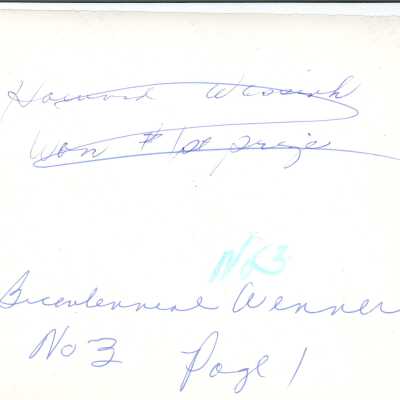 Howard Wessink
Won #1st prize
No 3
Bicentennial Wenner
No 3 Page 1